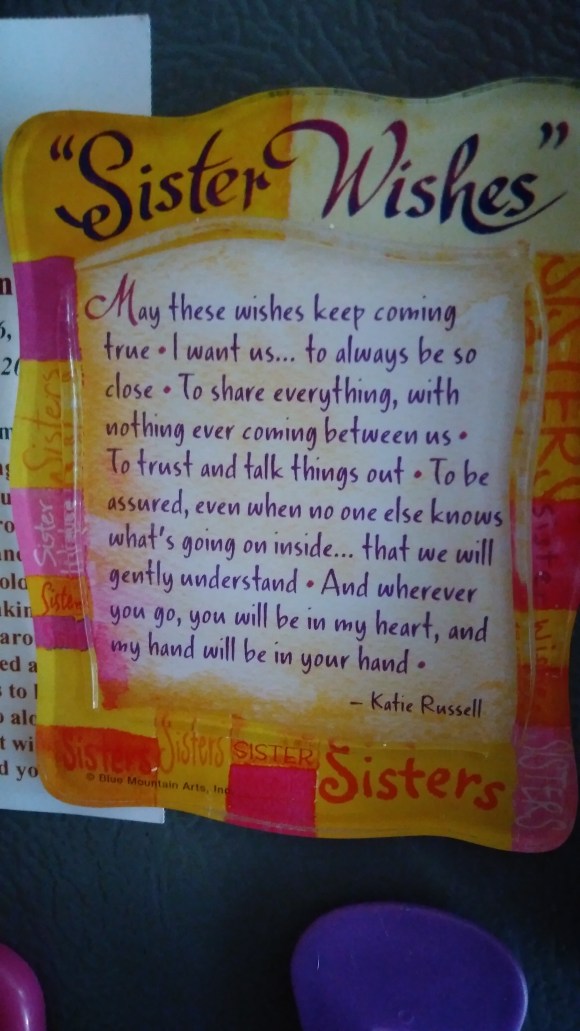 "Sister Wishes"
May these wishes keep coming
true • I want us... to always be so
close • To share everything, with
nothing ever coming between us •
To trust and talk things out • To be
assured, even when no one else knows
what's going on inside... that we will
gently understand • And wherever
you go, you will be in my heart, and
my hand will be in your hand •
– Katie Russell
Sisters
Sister
Sister
Sisters
Sisters
SISTER
Sisters
© Blue Mountain Arts, Inc
SISTERS
Sister
Wishes
SISTERS